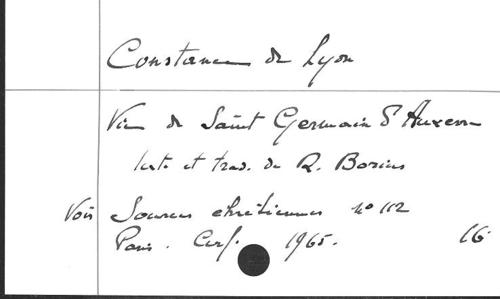 Constance de Lyon
Vie de Saint Germain d'Auxerre
texte et trad. de R. Borius
Voir Sources chrétiennes nº 112
Paris. Cerf. 1965. 16